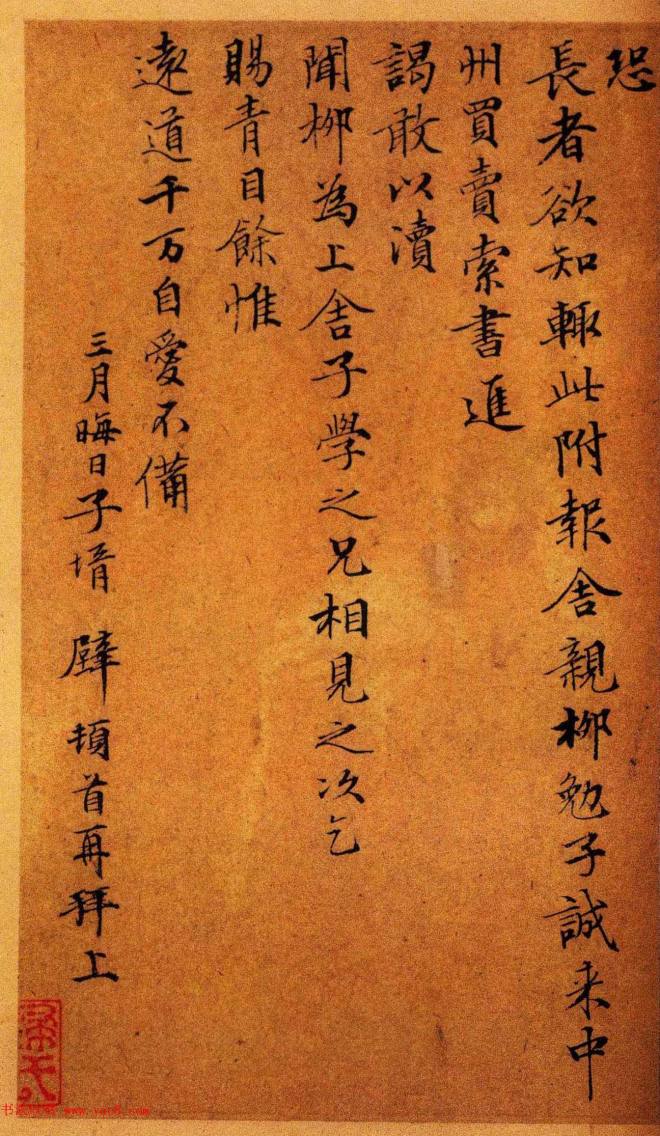 恐
長者欲知輒此附報舍親柳勉子誠来中
州買賣索書進
謁敢以瀆
聞柳為上舍子學之兄相見之次乞
賜青目餘惟
遠道千万自愛不備
三月晦日子壻 孼 頓首再拜上